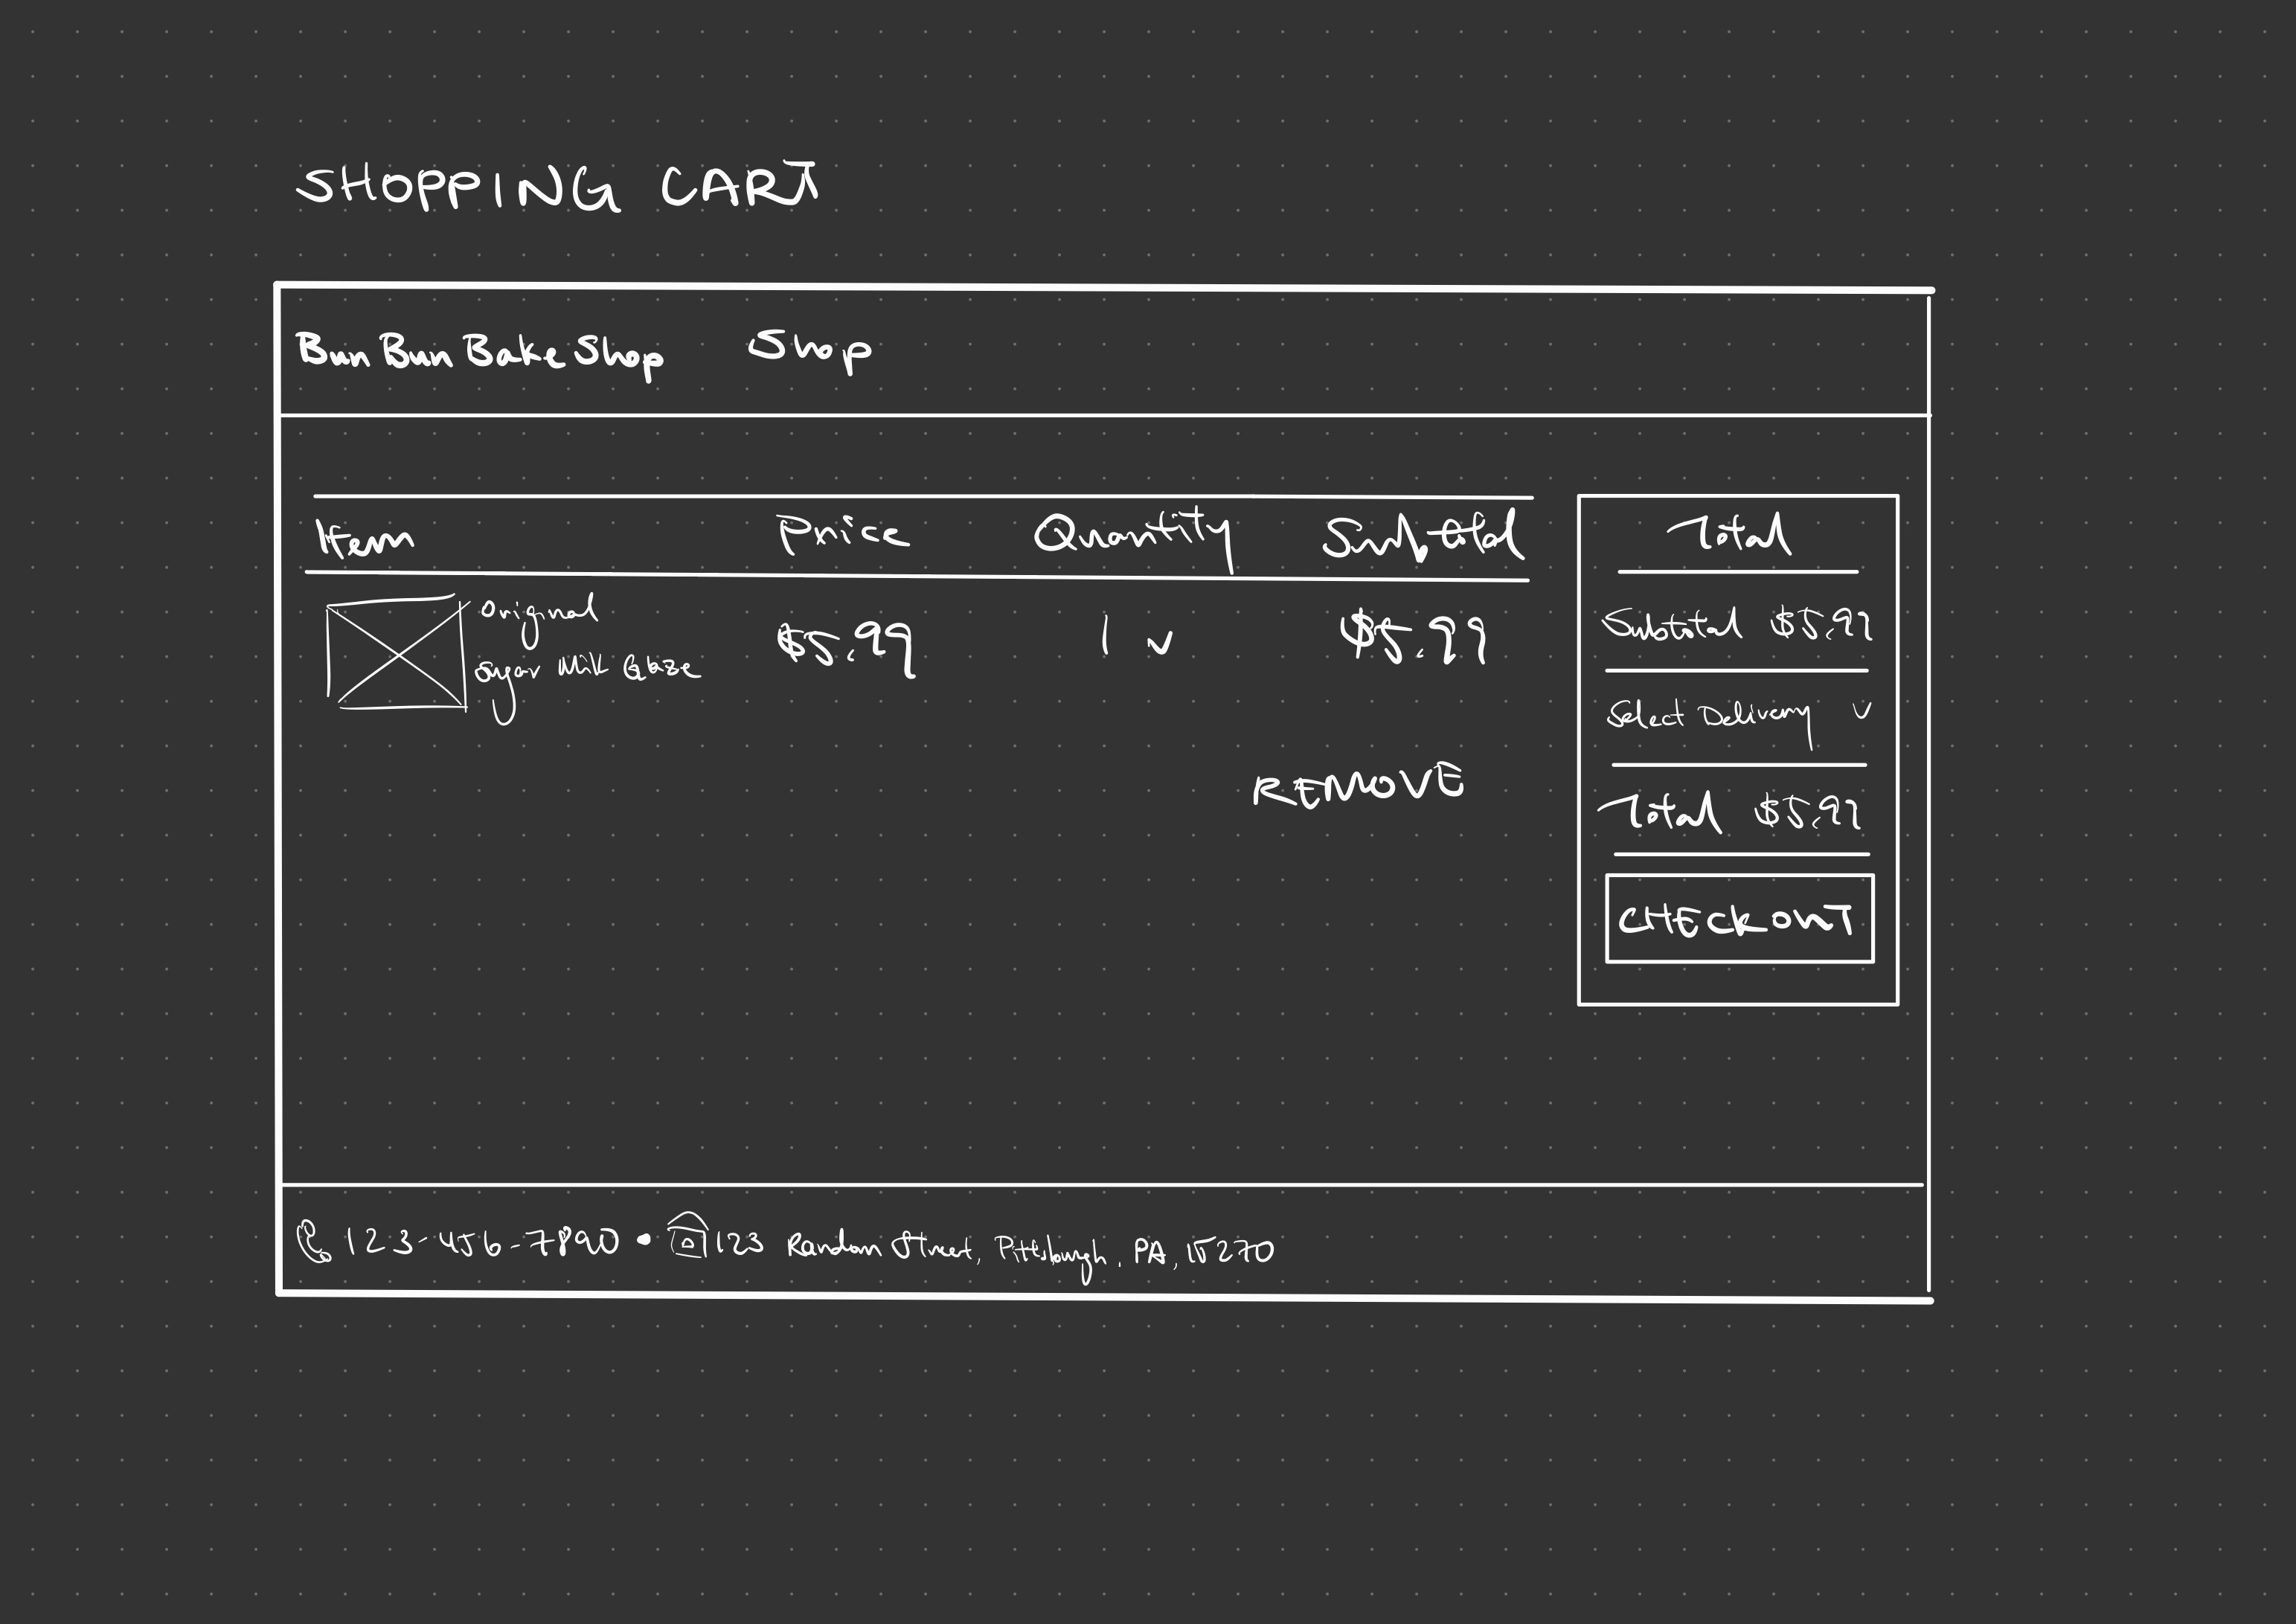 SHOPPING CART
Bun Bun Bake Shop Shop
Item Price Quantity Subtotal
Original $5.99 1 $5.99
sugar milk glaze
REMOVE
Total
Subtotal $5.99
Select Delivery
Total $5.99
CHECKOUT
123-456-7890 • 123 Random Street, Pittsburgh, PA, 15290